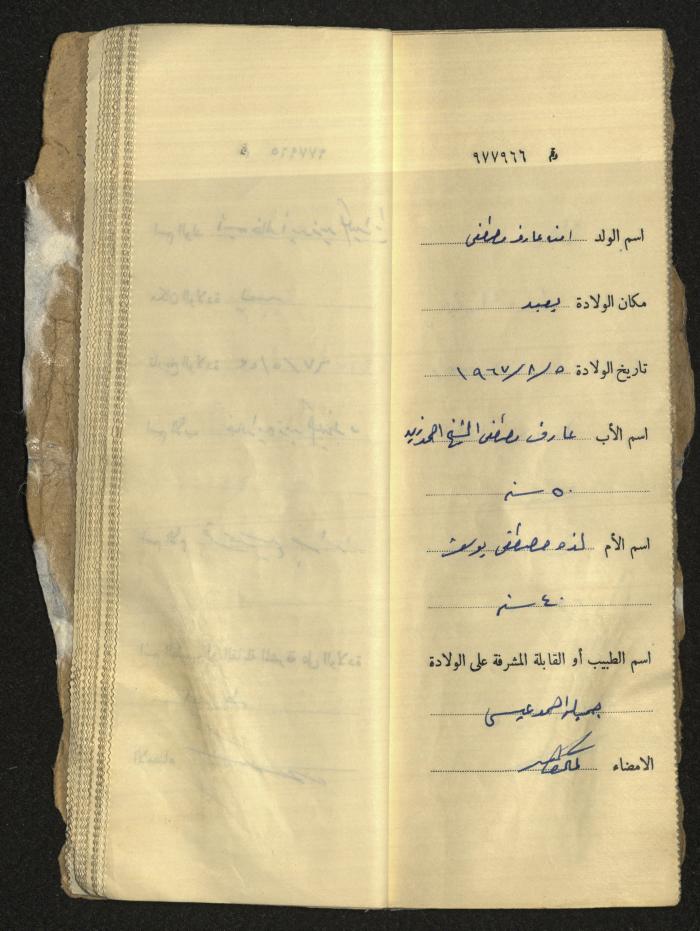 رقم ٩٧٧٩٦٦
اسم الولد عارف مصطفى
مكان الولادة يعبد
تاريخ الولادة ١٩٦٧/٨/٥
اسم الأب عارف مصطفى الشيخ احمد زيد
٥٠ سنه
اسم الأم مصطفى يوسف
٤٠ سنه
اسم الطبيب أو القابلة المشرفة على الولادة
جميله احمد عيسى
الامضاء